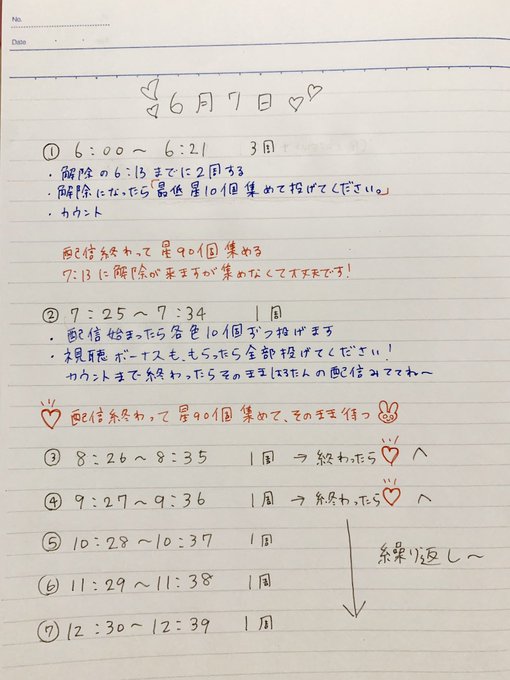 No.
Date
6月7日
① 6:00～6:21 3周
・解除の6:13までに2周する
・解除になったら「最低星10個集めて投げてください。」
・カウント
配信終わって星90個集める
7:13に解除が来ますが集めなくて大丈夫です!
② 7:25～7:34 1周
・配信始まったら各色10個ずつ投げます
・視聴ボーナスも、もらったら全部投げてください!
カウントまで終わったらそのままはるたんの配信みててね～
♡ 配信終わって星90個集めて、そのまま待つ
③ 8:26～8:35 1周 →終わったら♡へ
④ 9:27～9:36 1周 →終わったら♡へ
⑤ 10:28～10:37 1周
繰り返し～
⑥ 11:29～11:38 1周
⑦ 12:30～12:39 1周